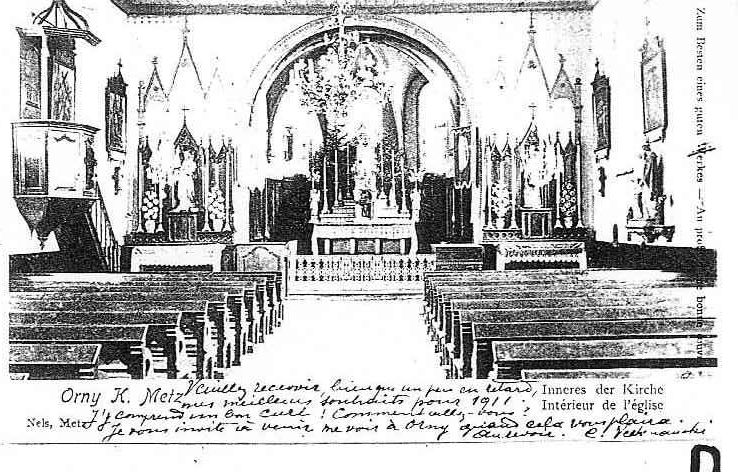 Zum Besten eines guten Werkes — Au profit bonne
Orny K. Metz
Veuillez recevoir bien qu'un peu en retard,
mes meilleurs souhaits pour 1911.
Inneres der Kirche
Intérieur de l'église
Nels, Metz
J'y comprend un bon curé! Comment allez-vous?
Je vous invite à venir me voir à Orny quand cela vous plaira.
Au revoir. C.